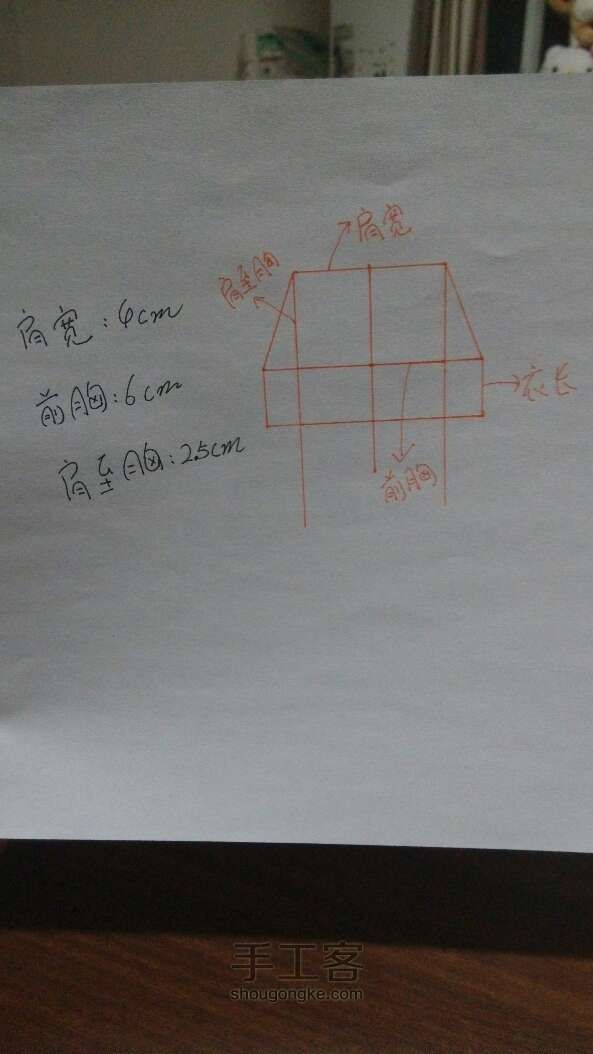 肩宽
肩至胸
肩宽:4cm
衣长
前胸:6cm
肩至胸:2.5cm
前胸
手工客
shougongke.com